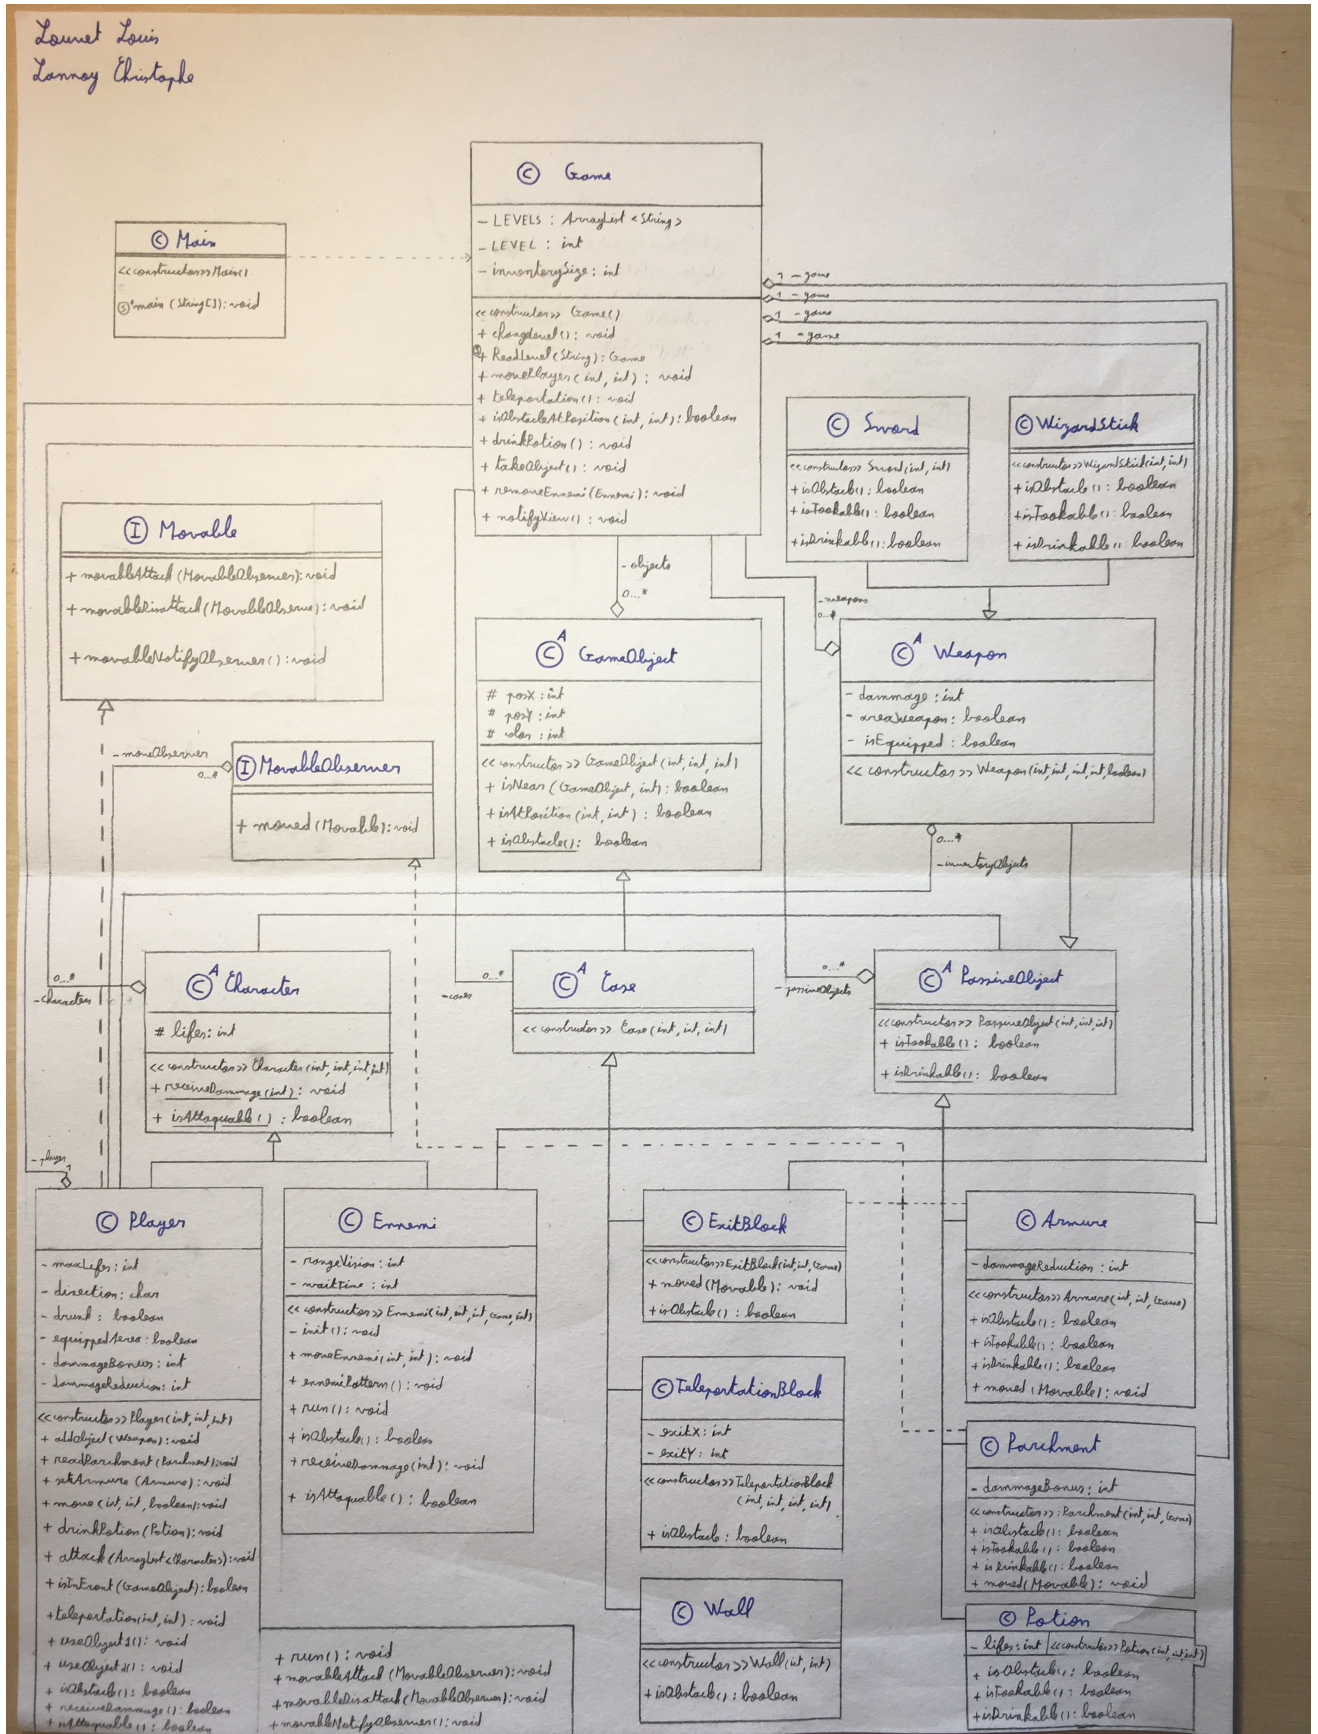 Lounet Louis
Lannoy Christophe
C Game
- LEVELS : ArrayList <String>
- LEVEL : int
- inventorySize : int
<<constructor>> Game()
+ changLevel() : void
+ ReadLevel(String) : Game
+ movePlayer(int, int) : void
+ teleportation() : void
+ isObstacleAtPosition(int, int) : boolean
+ drinkPotion() : void
+ takeObject() : void
+ removeEnnemi(Ennemi) : void
+ notifyView() : void
C Main
<<constructor>> Main()
S main (String[]) : void
1 - game
1 - game
1 - game
1 - game
C Sword
<<constructor>> Sword(int, int)
+ isObstacle() : boolean
+ isTookable() : boolean
+ isDrinkable() : boolean
C WizardStick
<<constructor>> WizardStick(int, int)
+ isObstacle() : boolean
+ isTookable() : boolean
+ isDrinkable() : boolean
I Movable
+ movableAttack(MovableObserver) : void
+ movableDisattack(MovableObserve) : void
+ movableNotifyObserver() : void
- objects
0...*
- weapons
0...*
A C GameObject
# posX : int
# posY : int
# color : int
<<constructor>> GameObject(int, int, int)
+ isNear(GameObject, int) : boolean
+ isAtPosition(int, int) : boolean
+ isObstacle() : boolean
A C Weapon
- dammage : int
- areaWeapon : boolean
- isEquipped : boolean
<<constructor>> Weapon(int, int, int, int, boolean)
- moveObserver
0...*
I MovableObserver
+ moved(Movable) : void
0...*
- inventoryObjects
0...*
- characters
A C Character
# lifes : int
<<constructor>> Character(int, int, int, int)
+ receiveDammage(int) : void
+ isAttaquable() : boolean
0...*
- cases
A C Case
<<constructor>> Case(int, int, int)
0...*
- passiveObjects
A C PassiveObject
<<constructor>> PassiveObject(int, int, int)
+ isTookable() : boolean
+ isDrinkable() : boolean
- player
1
C Player
- maxLifes : int
- direction : char
- drunk : boolean
- equippedArea : boolean
- dammageBonus : int
- dammageReduction : int
<<constructor>> Player(int, int, int)
+ addObject(Weapon) : void
+ readParchment(Parchment) : void
+ setArmure (Armure) : void
+ move (int, int, boolean) : void
+ drinkPotion(Potion) : void
+ attack(ArrayList<Character>) : void
+ isInFront(GameObject) : boolean
+ teleportation(int, int) : void
+ useObject1() : void
+ useObject2() : void
+ isObstacle() : boolean
+ receiveDammage() : boolean
+ isAttaquable() : boolean
+ run() : void
+ movableAttack (MovableObserver) : void
+ movableDisattack(MovableObserver) : void
+ movableNotifyObserver() : void
C Ennemi
- rangeVision : int
- waitTime : int
<<constructor>> Ennemi(int, int, int, Game, int)
- init() : void
+ moveEnnemi(int, int) : void
+ ennemiPattern() : void
+ run() : void
+ isObstacle() : boolean
+ receiveDammage(int) : void
+ isAttaquable() : boolean
C ExitBlock
<<constructor>> ExitBlock(int, int, Game)
+ moved(Movable) : void
+ isObstacle() : boolean
C TeleportationBlock
- exitX : int
- exitY : int
<<constructor>> TeleportationBlock
(int, int, int, int)
+ isObstacle : boolean
C Wall
<<constructor>> Wall(int, int)
+ isObstacle() : boolean
C Armure
- dammageReduction : int
<<constructor>> Armure(int, int, Game)
+ isObstacle() : boolean
+ isTookable() : boolean
+ isDrinkable() : boolean
+ moved (Movable) : void
C Parchment
- dammageBonus : int
<<constructor>> : Parchment(int, int, Game)
+ isObstacle() : boolean
+ isTookable() : boolean
+ isDrinkable() : boolean
+ moved(Movable) : void
C Potion
- lifes : int <<constructor>> Potion(int, int, int)
+ isObstacle() : boolean
+ isTookable() : boolean
+ isDrinkable() : boolean